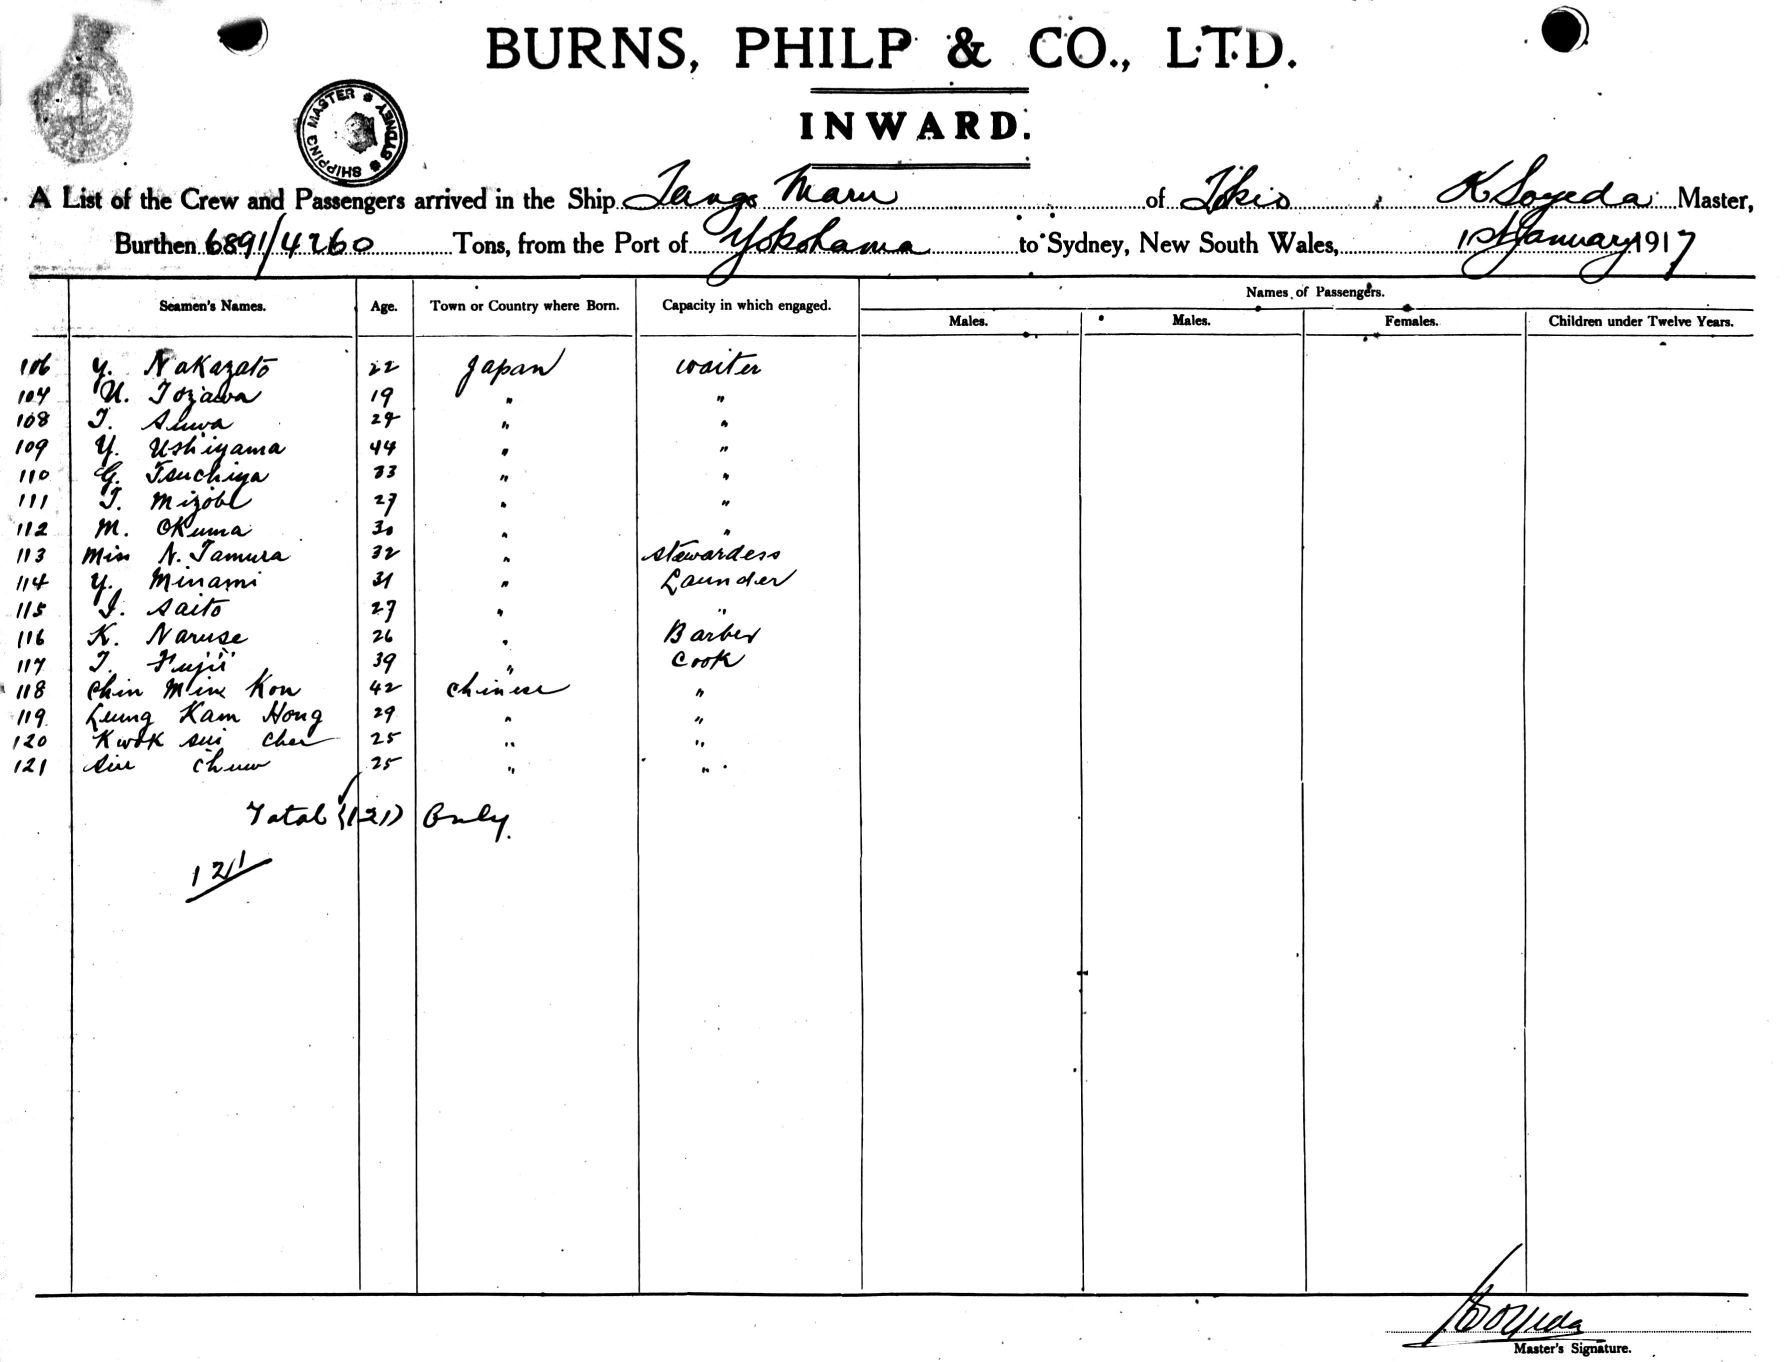 BURNS, PHILP & CO., LTD.
INWARD.
SHIPPING MASTER SYDNEY
A List of the Crew and Passengers arrived in the Ship Tango Maru of Tokio, K Soyeda Master,
Burthen 6891/4260 Tons, from the Port of Yokohama to Sydney, New South Wales, 1st January 1917
Seamen's Names. Age. Town or Country where Born. Capacity in which engaged. Names of Passengers.
Males. Males. Females. Children under Twelve Years.
106 Y. Nakazato 22 Japan waiter
107 U. Tozawa 19 " "
108 T. Suwa 29 " "
109 Y. Ushiyama 44 " "
110 G. Tsuchiya 33 " "
111 T. Mizobe 27 " "
112 M. Okuma 30 " "
113 Miss N. Tamura 32 " Stewardess
114 Y. Minami 31 " Launder
115 I. Saito 27 " "
116 K. Naruse 26 " Barber
117 T. Fujii 39 " Cook
118 Chin Kon 42 Chinese "
119 Leung Kam Hong 29 " "
120 Kwok Sui Cher 25 " "
121 Siu Chuw 25 " "
Total (121) Only.
121
K Soyeda
Master's Signature.